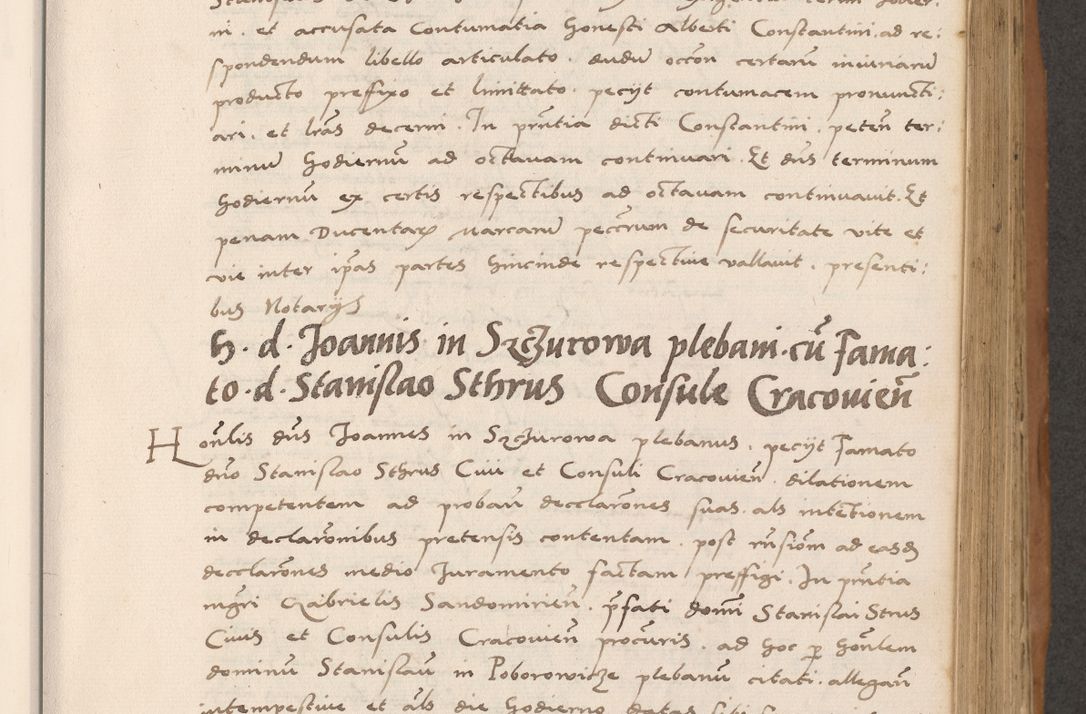 ni . et accusata Contumatia honesti Alberti Constantini . ad re:
spondendum libello articulato . dudu occōn certarū iniuriarū
producto preffixo et limittato . pecijt contumacem pronuncti:
ari . et lrās decerni . In pn̄tia dicti Constantini . peteñ ter:
minū hodiernū ad octavam continuari . Et dn̄s terminum
hodiernū ex certis respectibus ad octavam continuavit . Et
penam Ducentarꝝ Marcarū peccrum de securitate vite et
vie inter ip̄as partes hincinde respective vallavit . presenti:
bus Notarijs
H . d . Joannis in Szczurowa plebani . cū Fama:
to . d . Stanislao Sthrus Consule Cracovieñ
Honlis dn̄s Joannes in Szczurowa plebanus , pecijt Famato
dn̄o Stanislao Sthrus Civi et Consuli Cracovieñ . dilationem
competentem ad probañ decclarōnes suas . als intētionem
in declarōnibus pretensis contentam . post rn̄siōm ad easd
decclarōnes medio Juramento factam preffigi . In pn̄tia
mgr̄i Gabrielis Sandomirieñ . p̄fati domī Stanislai Strus
Civis et Consulis Cracovieñ procūris . ad hoc ꝑ hōnlem
dominū Stanislaū in Poborowicze plebanū citati . allegañ
intempestive et āls die hodierno